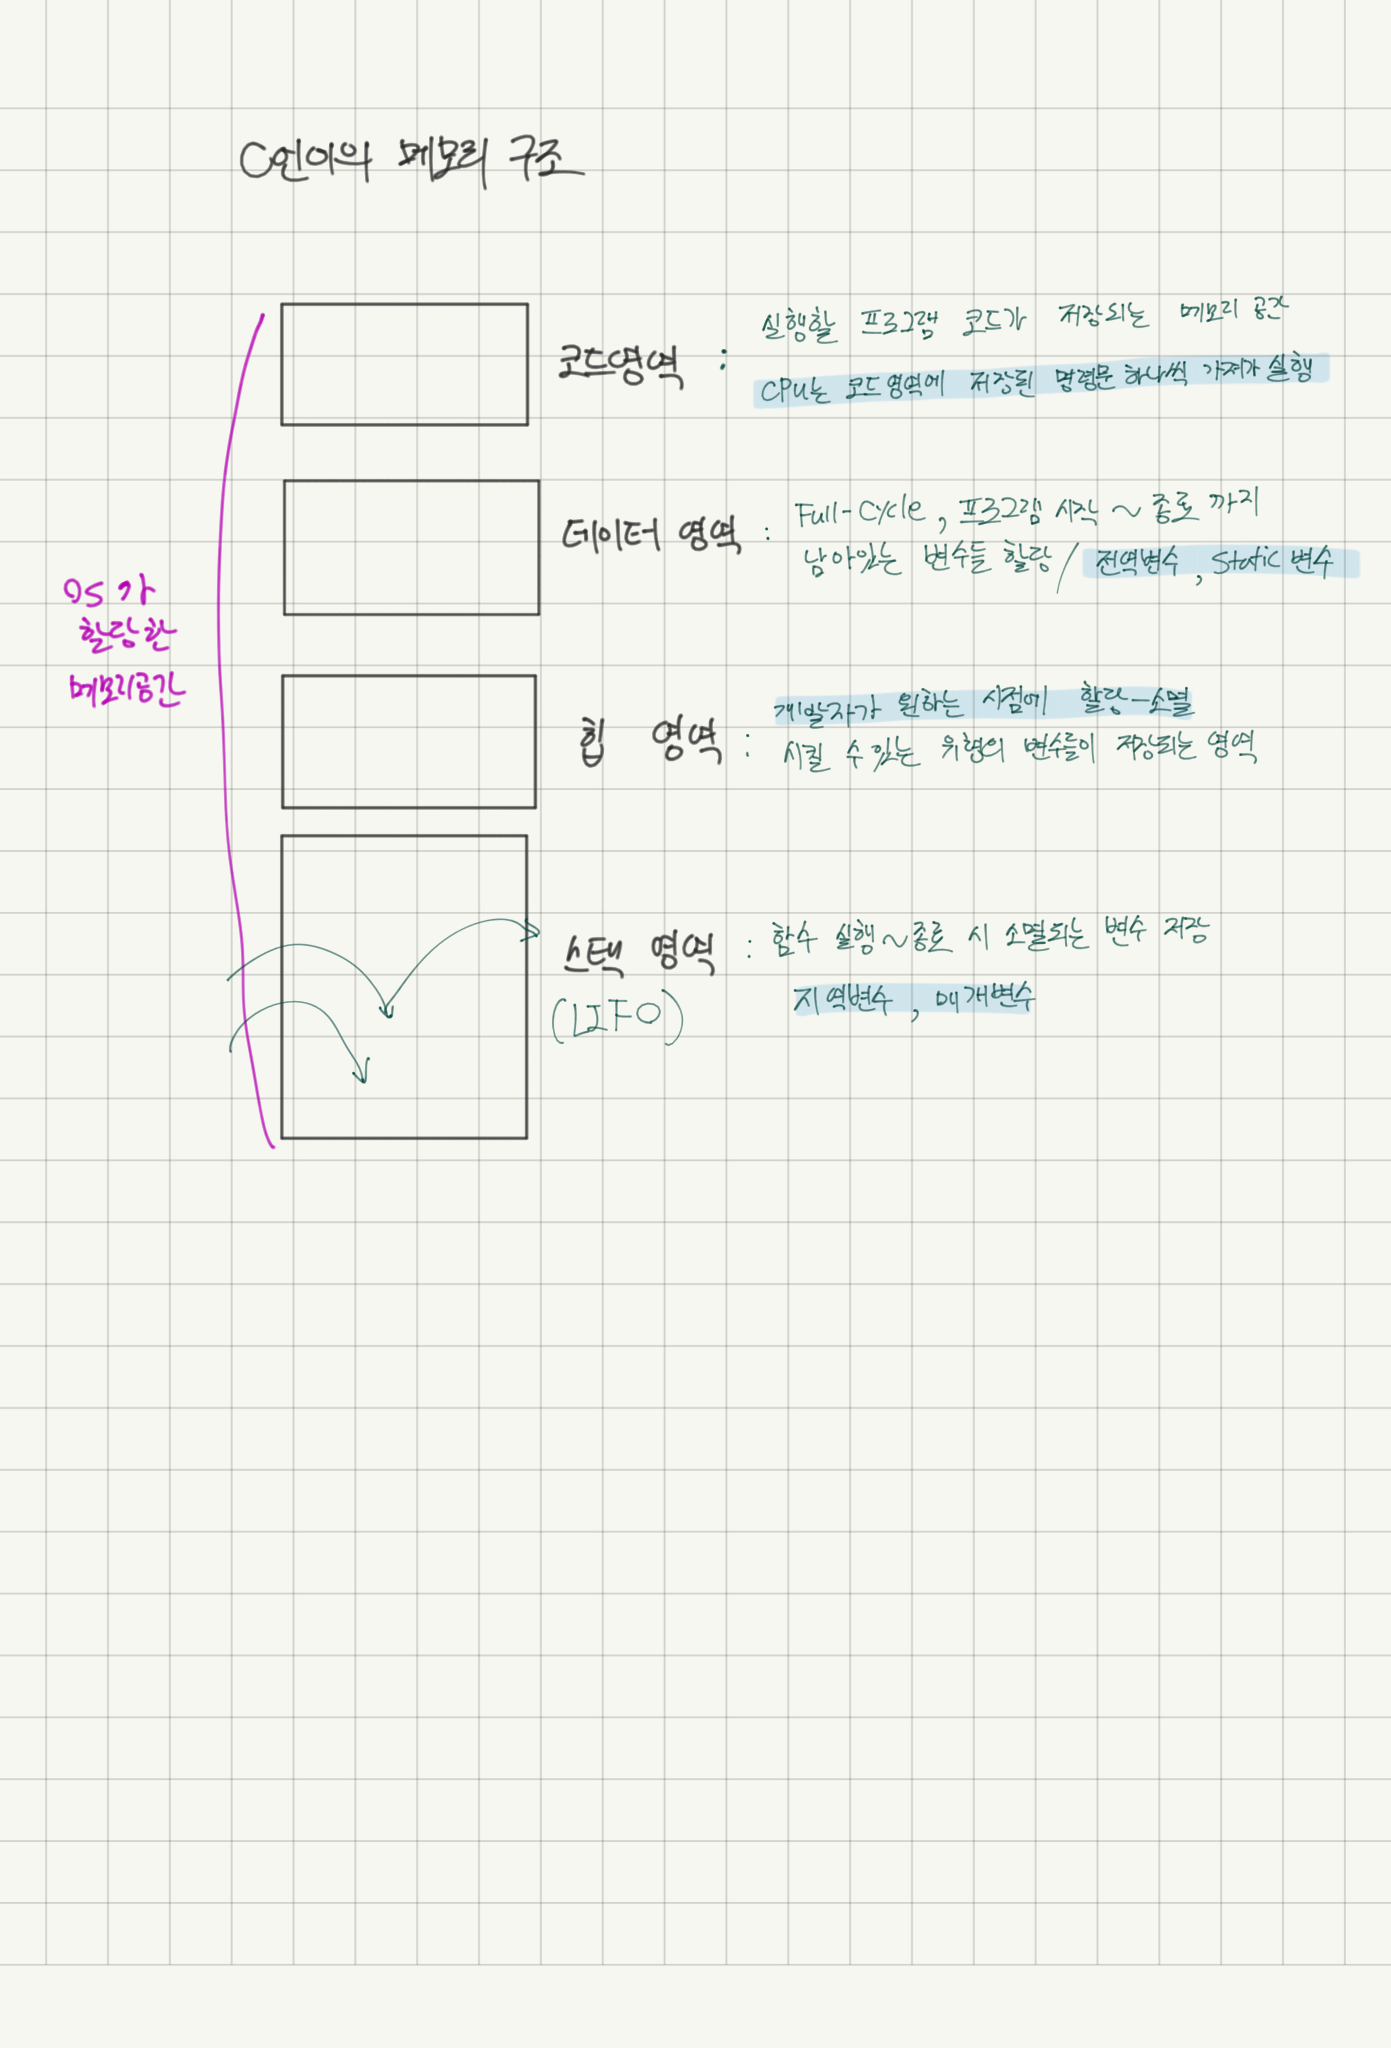 C언어의 메모리 구조
실행할 프로그램 코드가 저장되는 메모리 공간
코드영역 :
CPU는 코드영역에 저장된 명령문 하나씩 가져가 실행
Full-Cycle, 프로그램 시작 ~ 종료 까지
데이터 영역 :
남아있는 변수들 할당 / 전역변수, Static 변수
OS가
할당한
메모리공간
개발자가 원하는 시점에 할당-소멸
힙 영역 :
시킬 수 있는 유형의 변수들이 저장되는 영역
스택 영역 : 함수 실행~종료 시 소멸되는 변수 저장
(LIFO)
지역변수, 매개변수